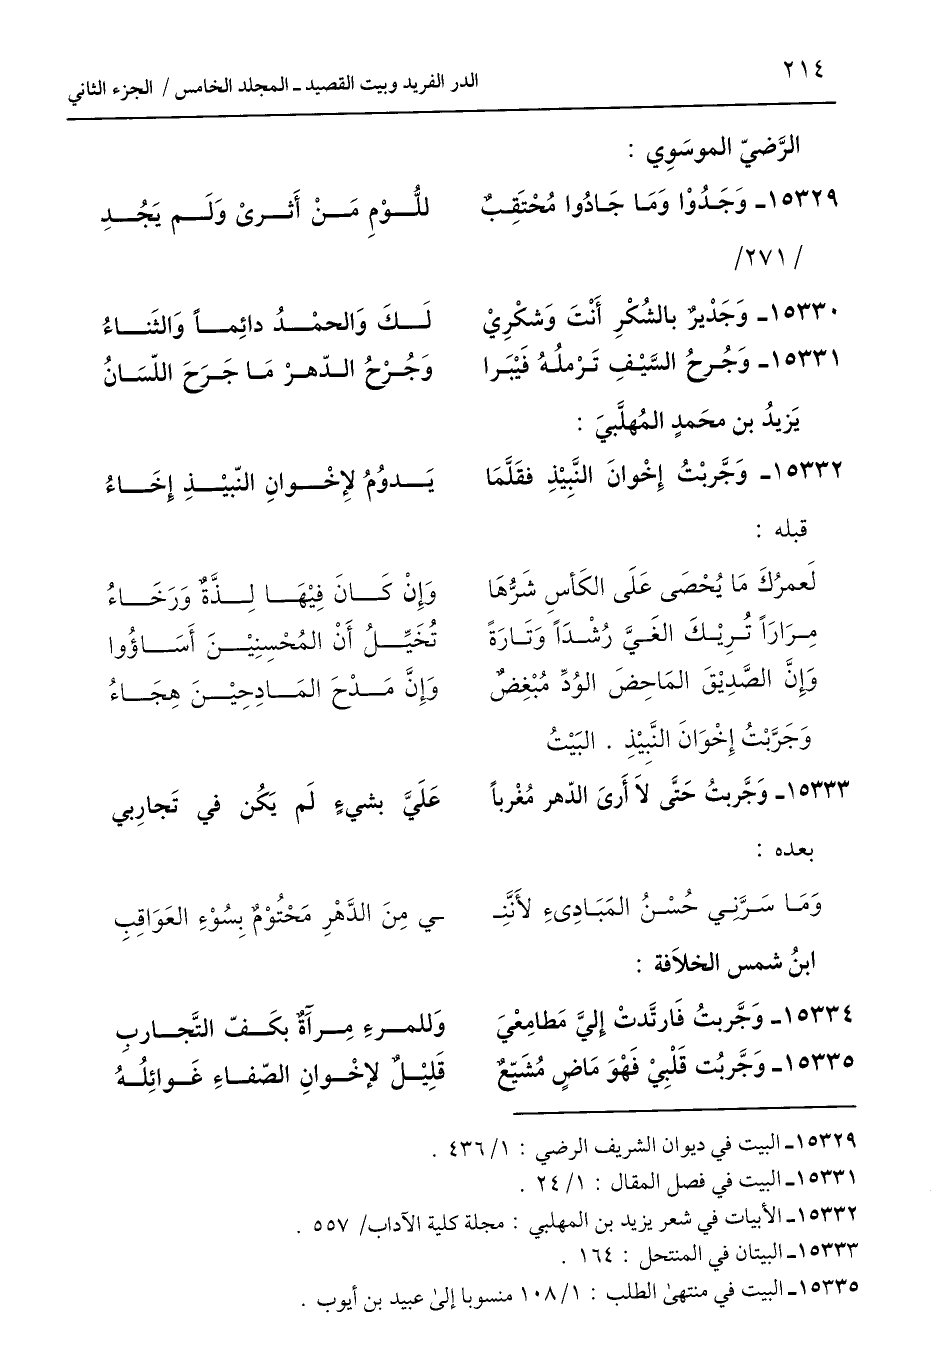 ٢١٤
الدر الفريد وبيت القصيد ـ المجلد الخامس / الجزء الثاني
الرَّضيّ الموسَوِي :
١٥٣٢٩ـ وَجَدُوْا وَمَا جَادُوا مُحْتَقِبٌ للُّوْمِ مَنْ أَثرىْ وَلَم يَجُدِ
/ ٢٧١/
١٥٣٣٠ـ وَجَدْيرٌ بالشُكْرِ أَنْتَ وَشكرِيْ لَكَ وَالحمْدُ دائِماً وَالثَناءُ
١٥٣٣١ـ وَجُرحُ السَّيْفِ تَرْملُهُ فَيْبَرا وَجُرْحُ الدّهرْ مَا جَرَحَ اللّسَانُ
يَزيدُ بن محَمدٍ المُهلَّبيَ :
١٥٣٣٢ـ وَجَّربْتُ إخْوانَ النَّبِيْذِ فقَلَّمَا يَدوُمُ لإخْوانِ النّبيْذِ إخَاءُ
قبله :
لَعمرُكَ مَا يُحْصَى عَلَى الكَأسِ شَرُّهَا وَإنْ كَانَ فِيْهَا لِذَّةٌ وَرَخَاءُ
مِرَارَاً تُرِيْكَ الغَيَّ رُشْدَاً وَتَارَةً تُخَيِّلُ أَنْ المُحْسِنِيْنَ أَسَاؤُوا
وَإنَّ الصَّدِيْقَ المَاحِضَ الوُدِّ مُبْغِضٌ وَإنَّ مَدْحَ المَادِحِيْنَ هِجَاءُ
وَجَرَّبْتُ إخْوَانَ النَّبِيْذِ . البَيْتُ
١٥٣٣٣ـ وَجَّربتُ حَتَّى لاَ أَرىَ الدّهر مُغْرباً عَلَيَّ بشيءٍ لَم يَكُن في تَجاربي
بعده :
وَمَا سَرَّنِي حُسْنُ المَبَادِىءِ لأَنَّنِـ ـي مِنَ الدَّهْرِ مَحْتُومٌ بِسُوْءِ العَوَاقِبِ
ابنُ شمس الخلاَفة :
١٥٣٣٤ـ وَجَّربتُ فَارتَّدتْ إليَّ مَطامِعْيَ وَللمرءِ مِرآةٌ بكَفّ التَّجاربِ
١٥٣٣٥ـ وَجَّربُت قَلْبيْ فَهْوَ مَاضٍ مُشَيّعٌ قَلِيْلٌ لإخْوانِ الصّفاءِ غَوائِلُهُ
١٥٣٢٩ـ البيت في ديوان الشريف الرضي : ١/ ٤٣٦ .
١٥٣٣١ـ البيت في فصل المقال : ١/ ٢٤ .
١٥٣٣٢ـ الأبيات في شعر يزيد بن المهلبي : مجلة كلية الآداب/ ٥٥٧ .
١٥٣٣٣ـ البيتان في المنتحل : ١٦٤ .
١٥٣٣٥ـ البيت في منتهىٰ الطلب : ١/ ١٠٨ منسوبا إلىٰ عبيد بن أيوب .